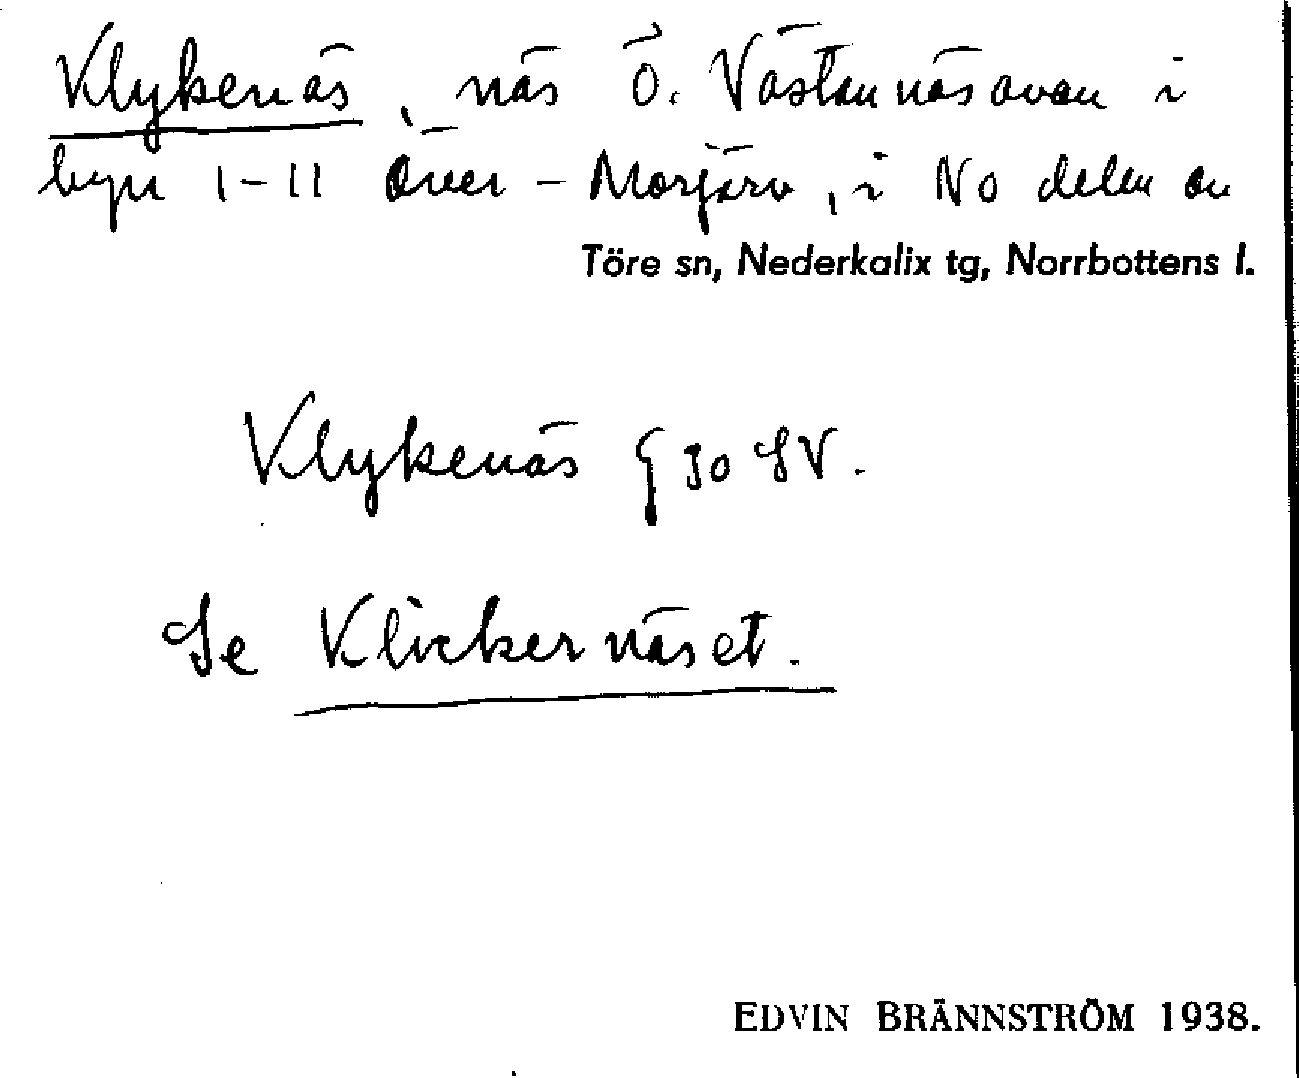 Klykenäs, näs ö. Västannäsavan i
byn 1-11 Över-Morjärv, i No delen av
Töre sn, Nederkalix tg, Norrbottens l.
Klykenäs G 30 SV.
Se Klickernäset.
EDVIN BRÄNNSTRÖM 1938.